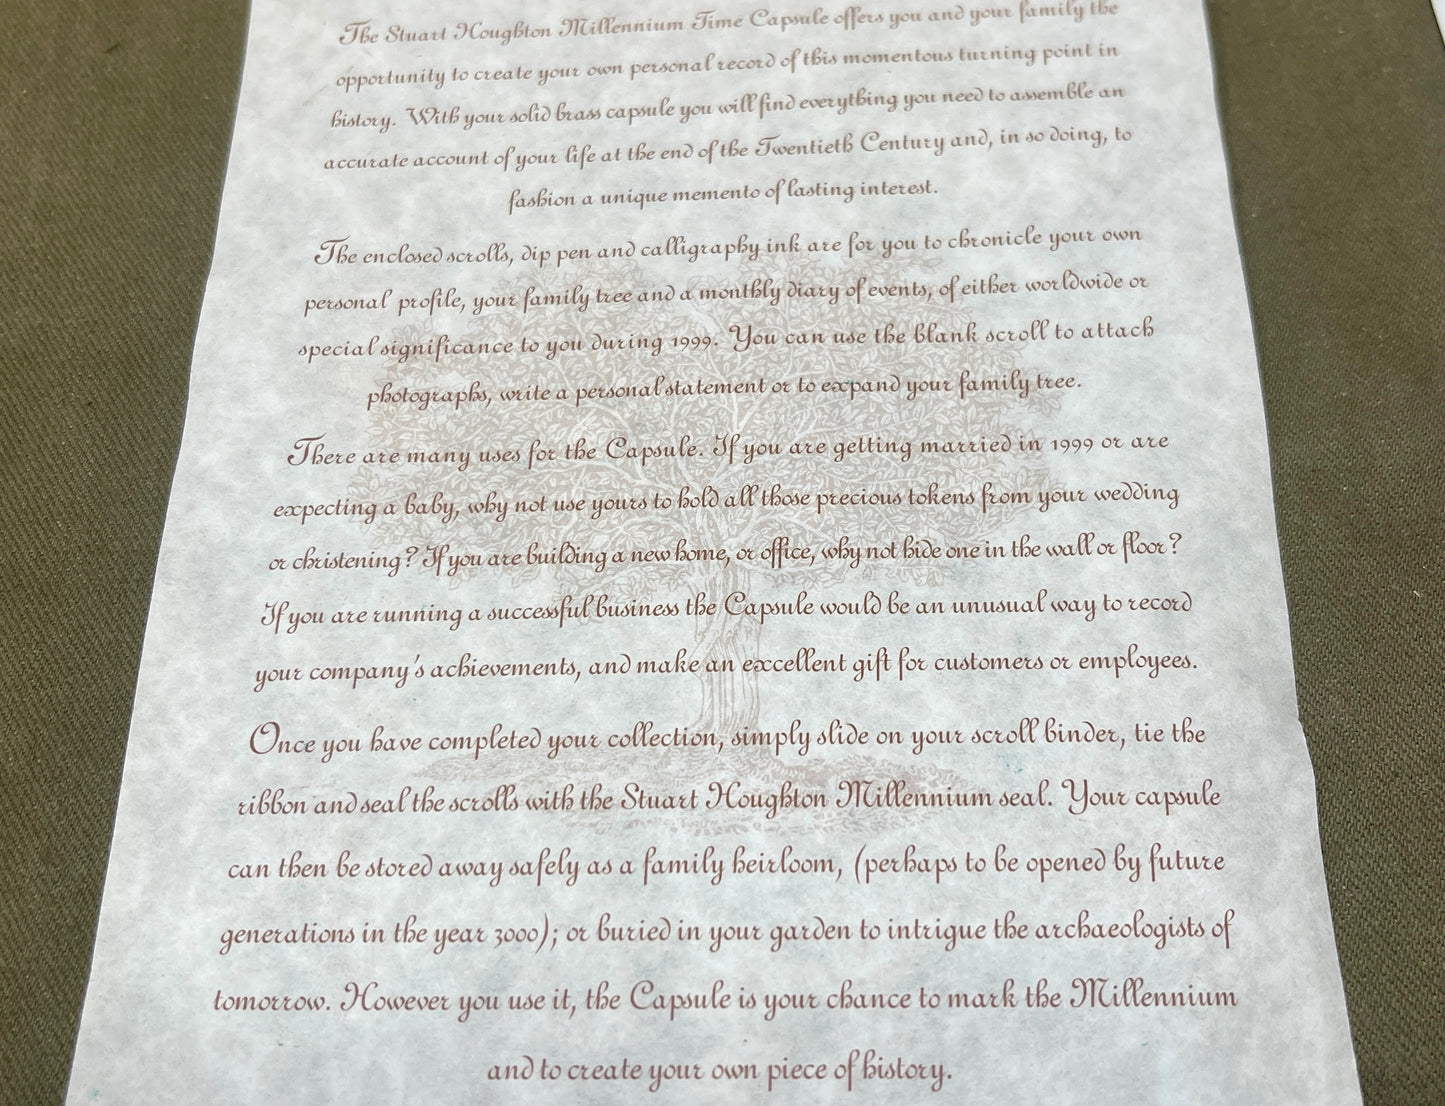 The Stuart Houghton Millennium Time Capsule offers you and your family the
opportunity to create your own personal record of this momentous turning point in
history. With your solid brass capsule you will find everything you need to assemble an
accurate account of your life at the end of the Twentieth Century and, in so doing, to
fashion a unique memento of lasting interest.
The enclosed scrolls, dip pen and calligraphy ink are for you to chronicle your own
personal profile, your family tree and a monthly diary of events, of either worldwide or
special significance to you during 1999. You can use the blank scroll to attach
photographs, write a personal statement or to expand your family tree.
There are many uses for the Capsule. If you are getting married in 1999 or are
expecting a baby, why not use yours to hold all those precious tokens from your wedding
or christening? If you are building a new home, or office, why not hide one in the wall or floor?
If you are running a successful business the Capsule would be an unusual way to record
your company's achievements, and make an excellent gift for customers or employees.
Once you have completed your collection, simply slide on your scroll binder, tie the
ribbon and seal the scrolls with the Stuart Houghton Millennium seal. Your capsule
can then be stored away safely as a family heirloom, (perhaps to be opened by future
generations in the year 3000); or buried in your garden to intrigue the archaeologists of
tomorrow. However you use it, the Capsule is your chance to mark the Millennium
and to create your own piece of history.